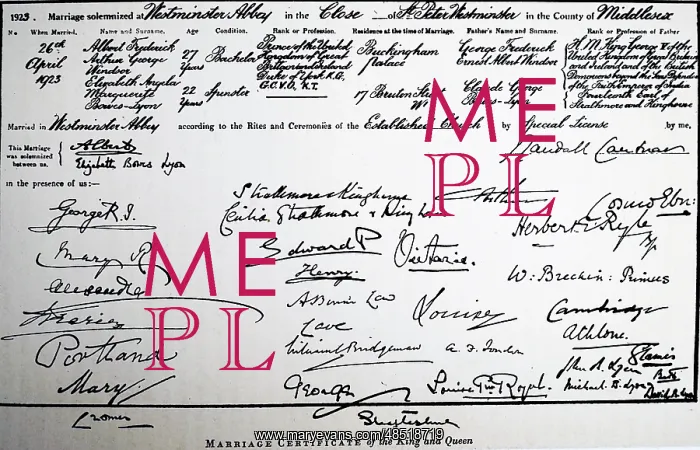 1923. Marriage solemnized at Westminster Abbey in the Close of St Peter Westminster in the County of Middlesex
No When Married. Name and Surname. Age Condition. Rank or Profession. Residence at the time of Marriage. Father's Name and Surname. Rank or Profession of Father
26th April 1923
Albert Frederick Arthur George Windsor
27 Years
Bachelor
Prince of the United Kingdom of Great Britain and Ireland Duke of York K.G. G.C.V.O., K.T.
Buckingham Palace
George Frederick Ernest Albert Windsor
H.M. King George V of the United Kingdom of Great Britain and Ireland and of the British Dominions beyond the Seas Defender of the Faith Emperor of India
Elizabeth Angela Marguerite Bowes-Lyon
22 Years
Spinster
17 Bruton Street W
Claude George Bowes-Lyon
Fourteenth Earl of Strathmore and Kinghorne
Married in Westminster Abbey according to the Rites and Ceremonies of the Established Church by Special License by me,
Randall Cantuar
This Marriage was solemnized between us,
Albert
Elizabeth Bowes Lyon
in the presence of us:—
Strathmore & Kinghorne
Arthur
Cosmo Ebor:
George R.I.
Cecilia Strathmore & Kinghorne
Herbert E Ryle
Mary R
Edward P
Victoria.
Alexandra
Henry.
W: Brechin: Primus
A Bonar Law
Louise
Cambridge
Athlone.
Portland
William Bridgeman
Glamis
Mary
George
Louise Pss Royal.
Michael. B. Lyon
David B. Lyon
Cromer
Shaftesbury
MARRIAGE CERTIFICATE of the King and Queen
ME
PL
ME
PL
www.maryevans.com/48518719